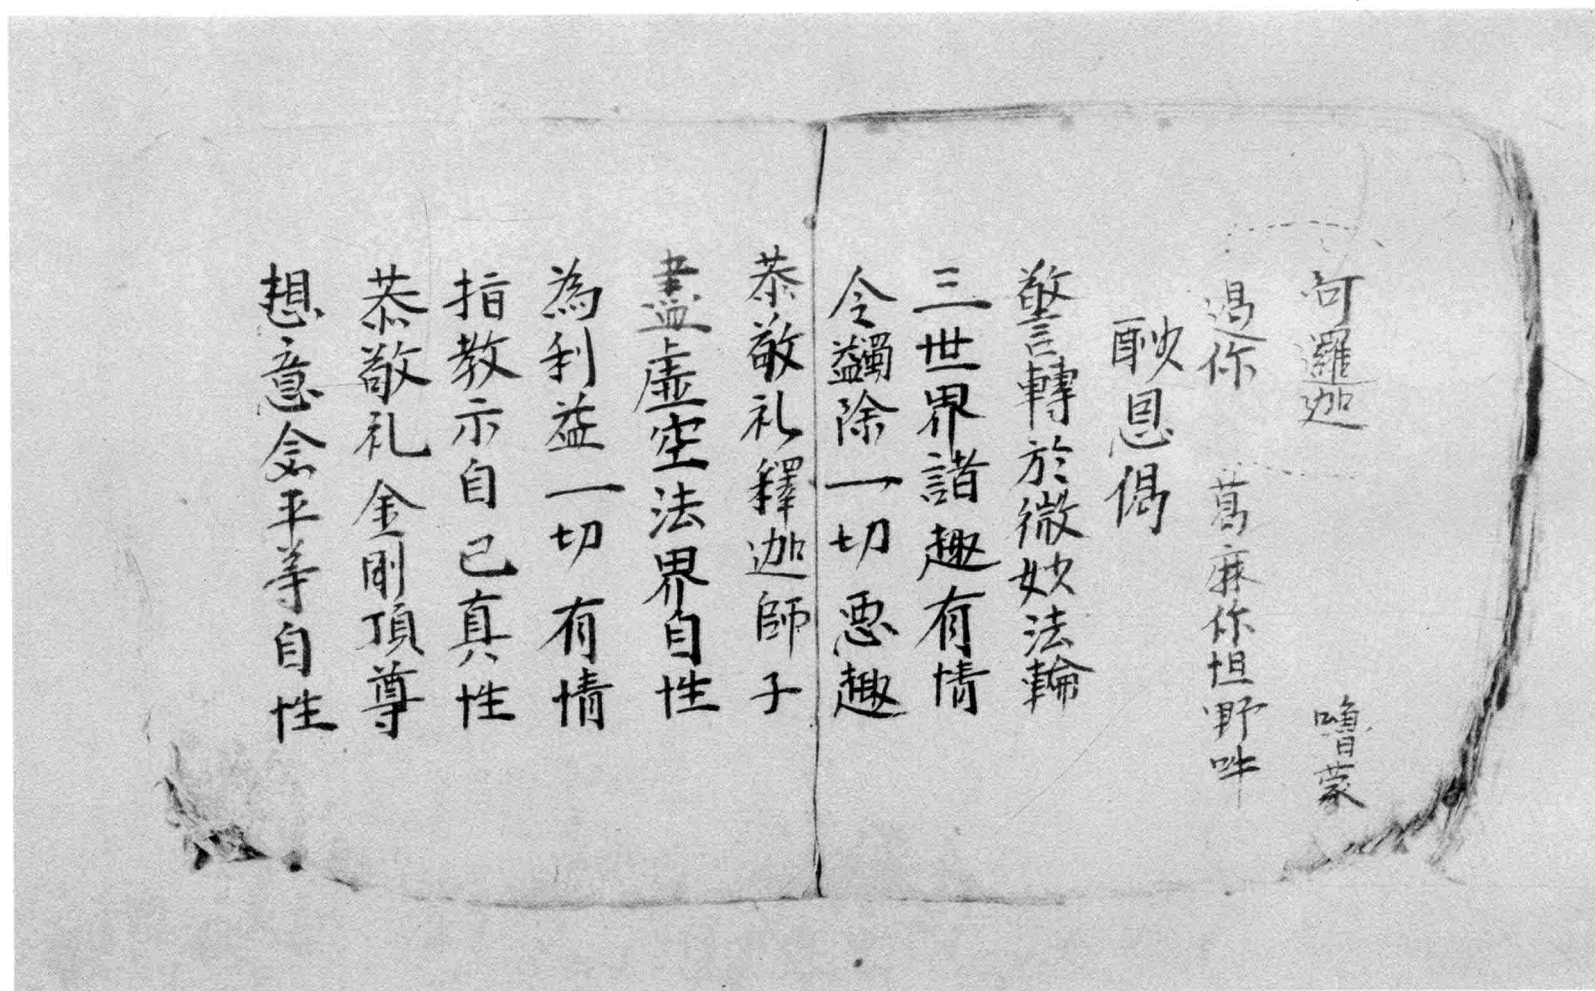 阿邏迦 嚕蒙
遏你 葛麻你怛野吽
酧恩偈
警轉於微妙法輪
三世界諸趣有情
令蠲除一切惡趣
恭敬礼釋迦師子
盡虛空法界自性
為利益一切有情
指教示自己真性
恭敬礼金剛頂尊
想意念平等自性